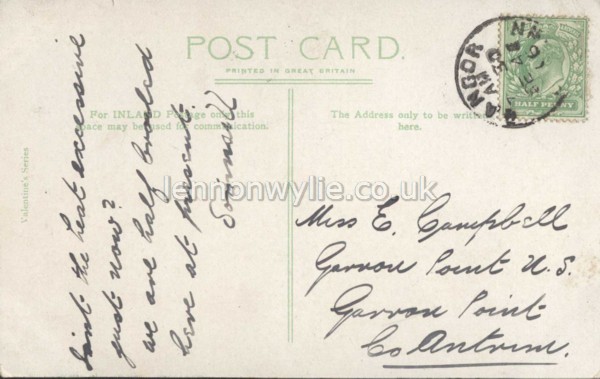 POST CARD.
PRINTED IN GREAT BRITAIN
For INLAND Postage only this
space may be used for communication.
The Address only to be written
here.
Valentine's Series
BANGOR
HALF PENNY
lennonwylie.co.uk
Isn't the heat excessive
just now?
we are half broiled
here at present.
Miss E. Campbell
Garron Point N.S.
Garron Point
Co Antrim.